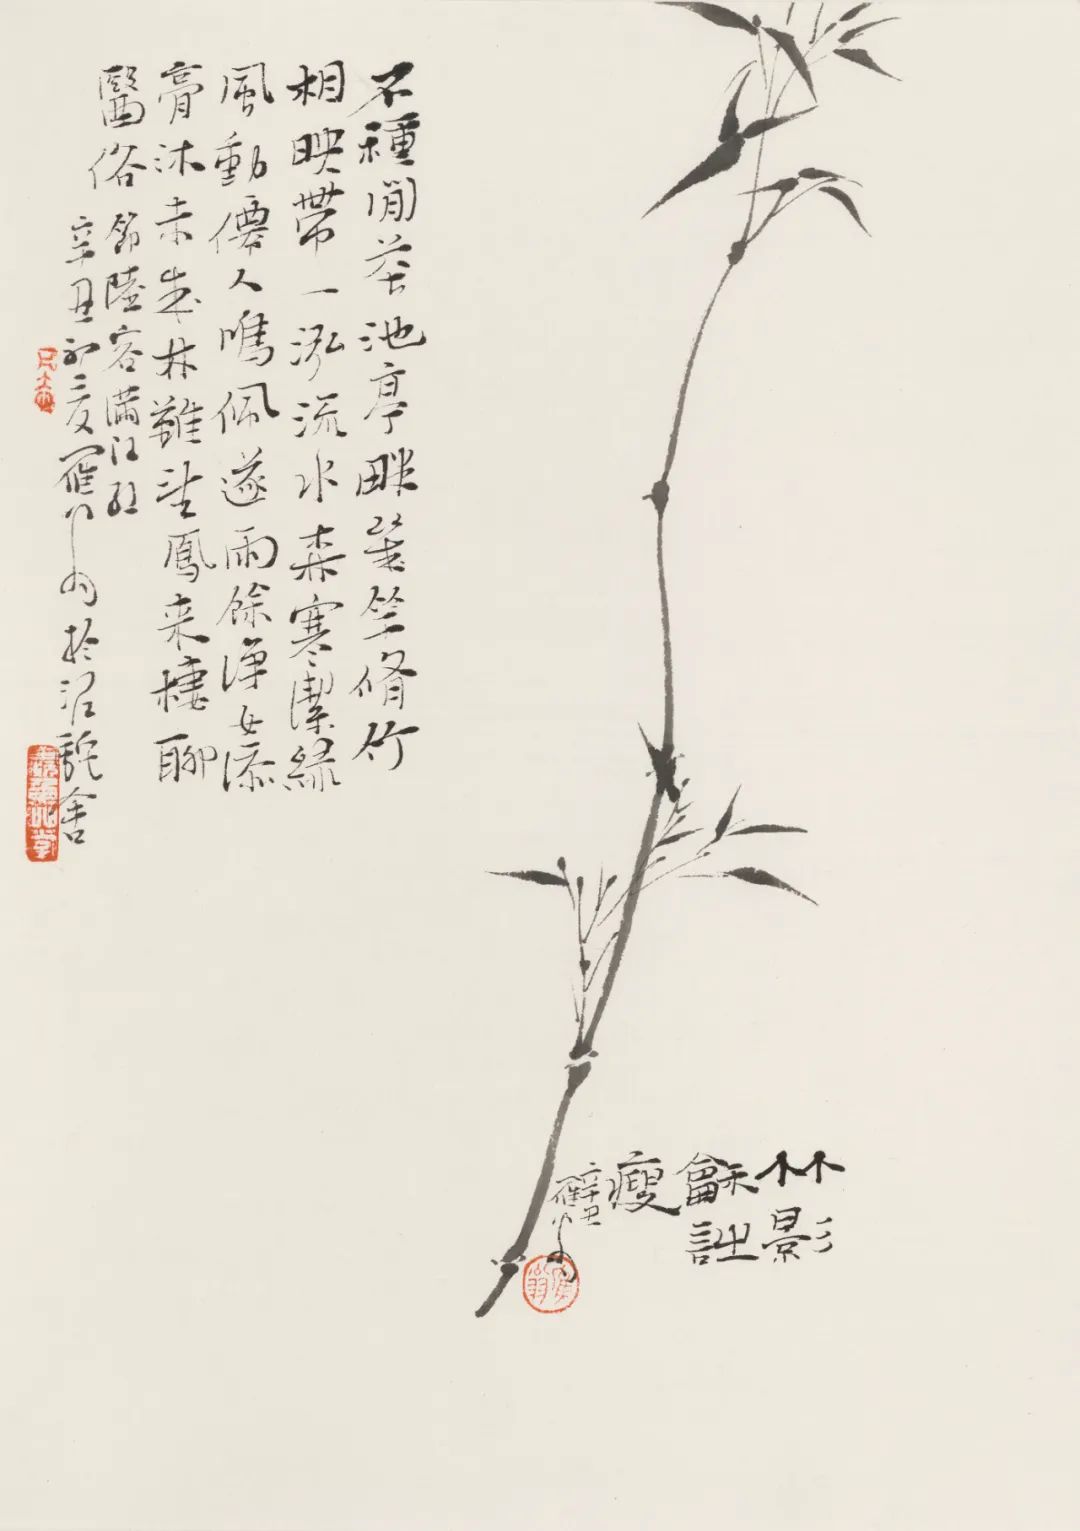 不種閒花池亭畔幾竿脩竹
相映帶一泓流水森寒潔綠
風動僊人鳴佩遂雨餘淨女添
膏沐未成林難望鳳来棲聊
醫俗 節陸容滿江紅
辛丑初夏 於沼 舍
竹影
龢詩
瘦
辛丑